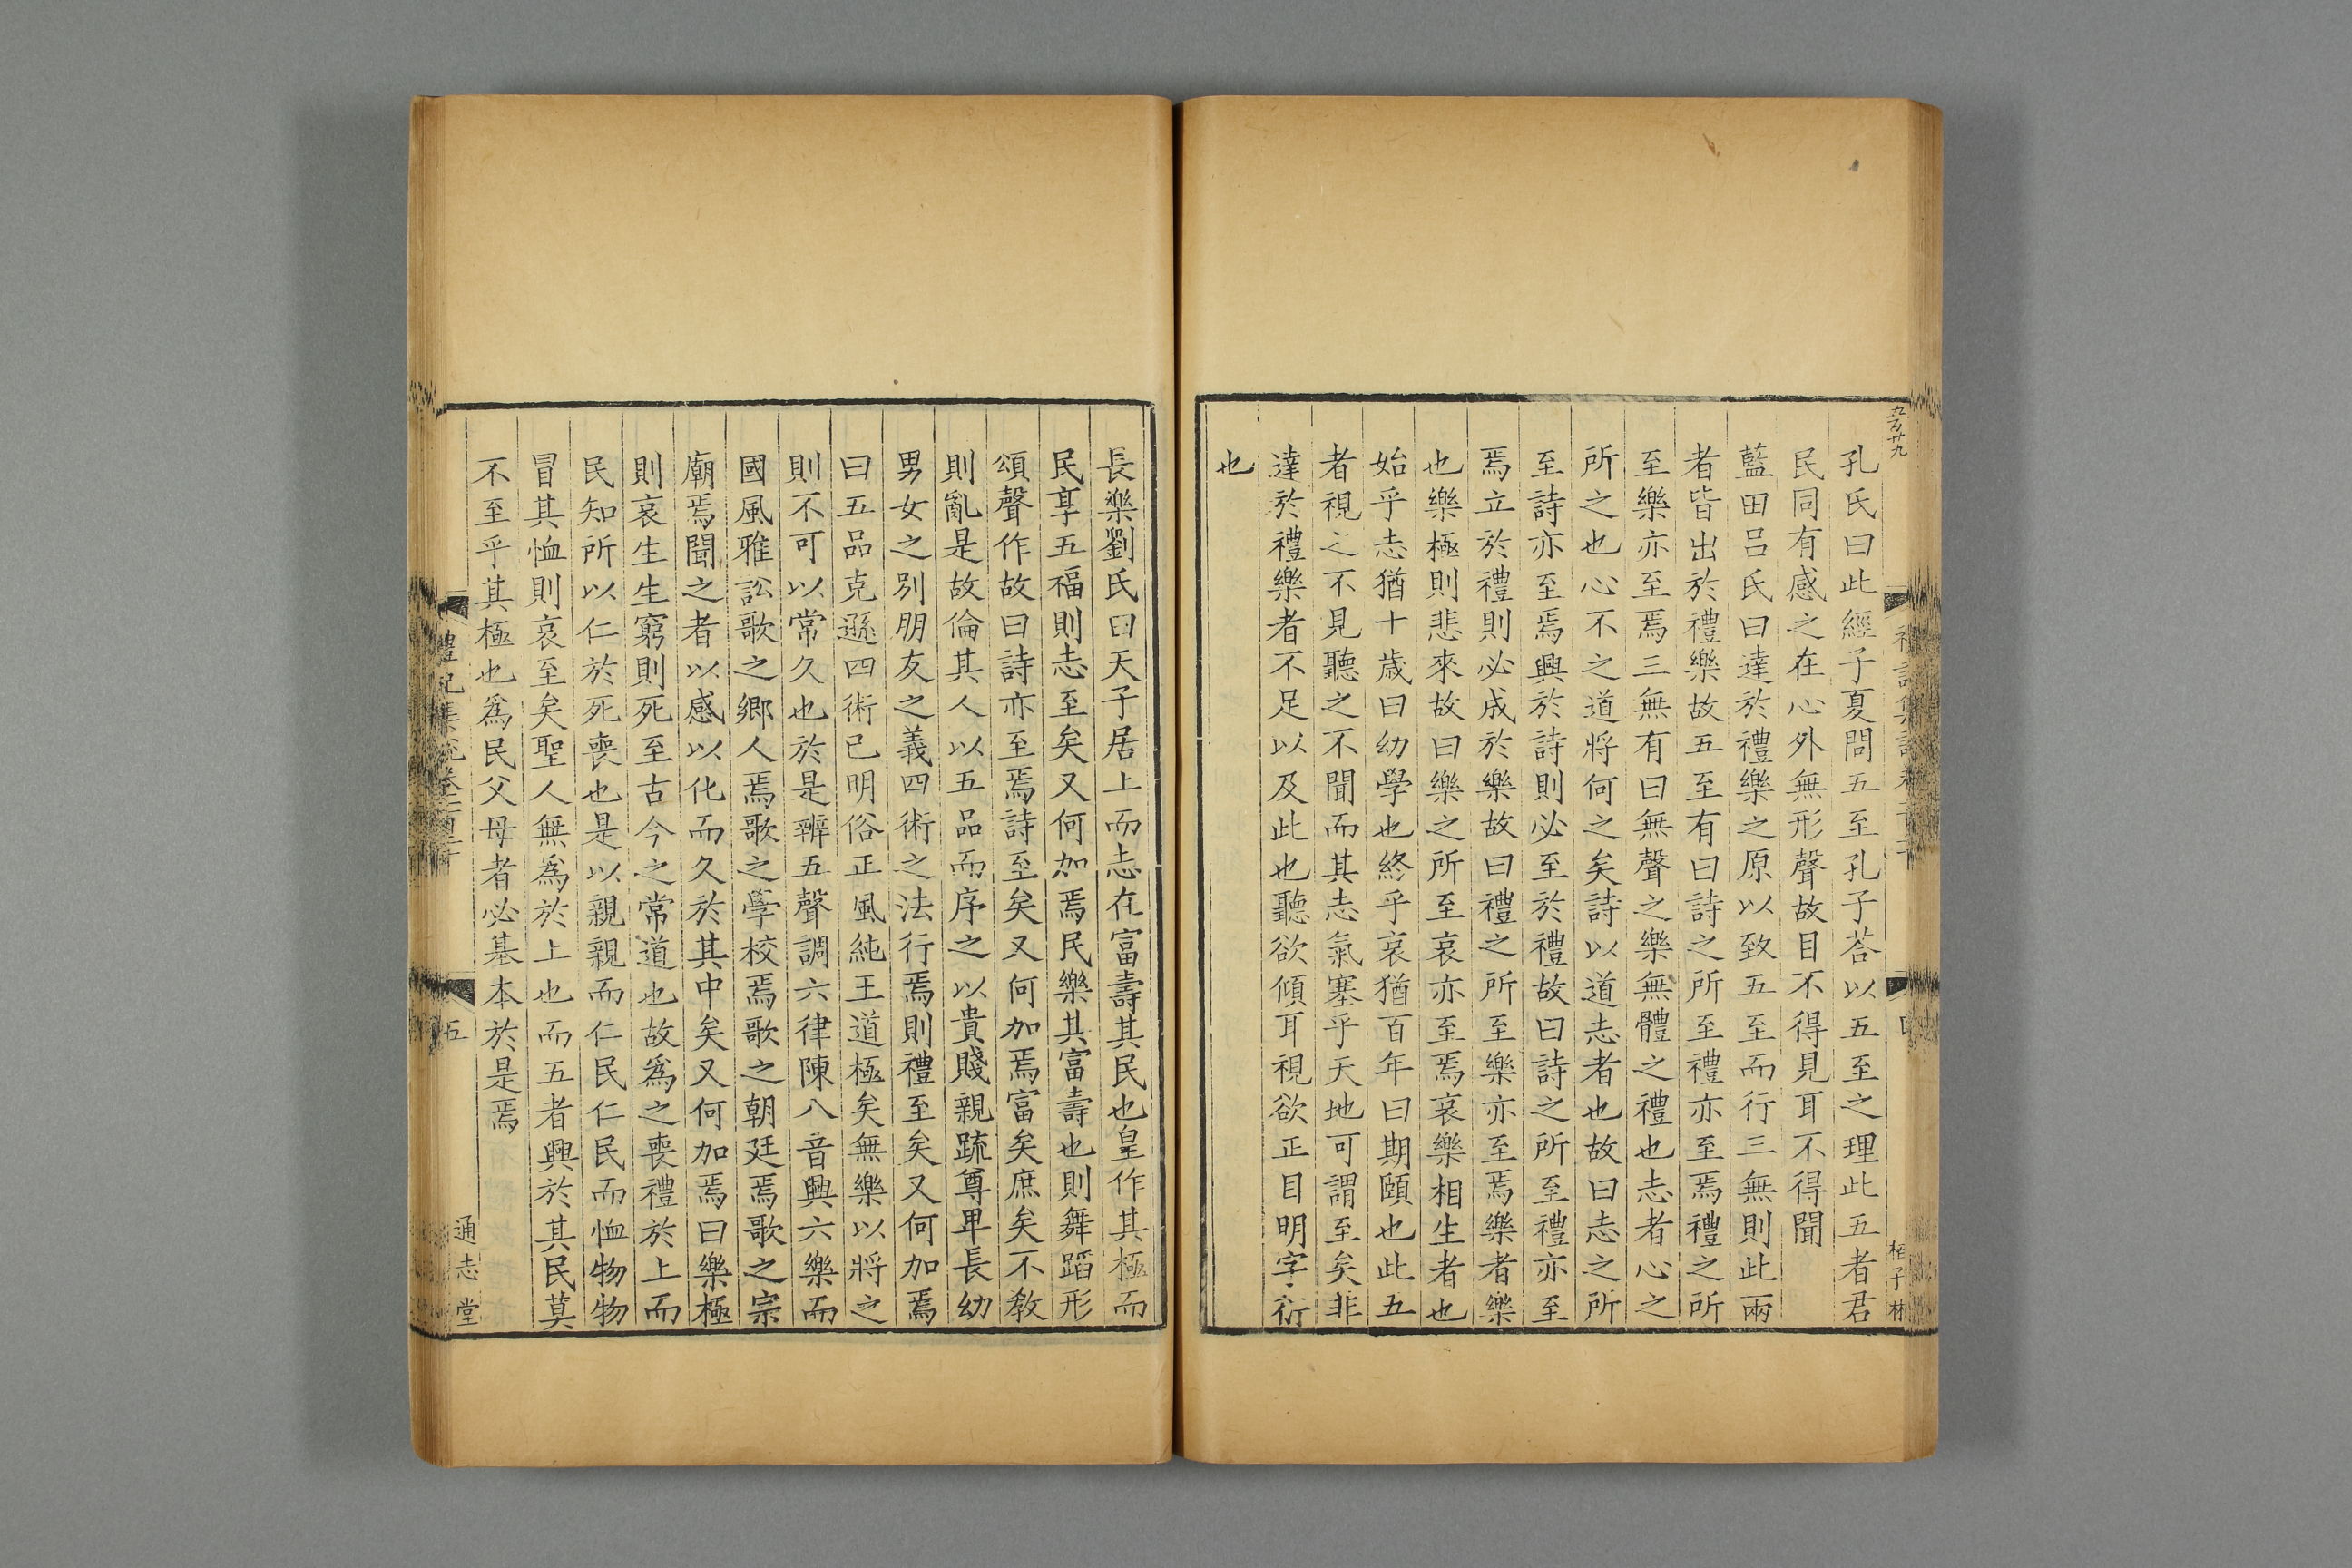 五百廿九
孔氏曰此經子夏問五至孔子荅以五至之理此五者君
民同有感之在心外無形聲故目不得見耳不得聞
藍田呂氏曰達於禮樂之原以致五至而行三無則此兩
者皆出於禮樂故五至有曰詩之所至禮亦至焉禮之所
至樂亦至焉三無有曰無聲之樂無體之禮也志者心之
所之也心不之道將何之矣詩以道志者也故曰志之所
至詩亦至焉興於詩則必至於禮故曰詩之所至禮亦至
焉立於禮則必成於樂故曰禮之所至樂亦至焉樂者樂
也樂極則悲來故曰樂之所至哀亦至焉哀樂相生者也
始乎志猶十歲曰幼學也終乎哀猶百年曰期頤也此五
者視之不見聽之不聞而其志氣塞乎天地可謂至矣非
達於禮樂者不足以及此也聽欲傾耳視欲正目明字衍
也
長樂劉氏曰天子居上而志在富壽其民也皇作其極而
民享五福則志至矣又何加焉民樂其富壽也則舞蹈形
頌聲作故曰詩亦至焉詩至矣又何加焉富矣庶矣不敎
則亂是故倫其人以五品而序之以貴賤親疏尊卑長幼
男女之別朋友之義四術之法行焉則禮至矣又何加焉
曰五品克遜四術已明俗正風純王道極矣無樂以將之
則不可以常久也於是辨五聲調六律陳八音興六樂而
國風雅訟歌之鄉人焉歌之學校焉歌之朝廷焉歌之宗
廟焉聞之者以感以化而久於其中矣又何加焉曰樂極
則哀生生窮則死至古今之常道也故爲之喪禮於上而
民知所以仁於死喪也是以親親而仁民仁民而恤物物
冒其恤則哀至矣聖人無爲於上也而五者興於其民莫
不至乎其極也爲民父母者必基本於是焉
五
通志堂